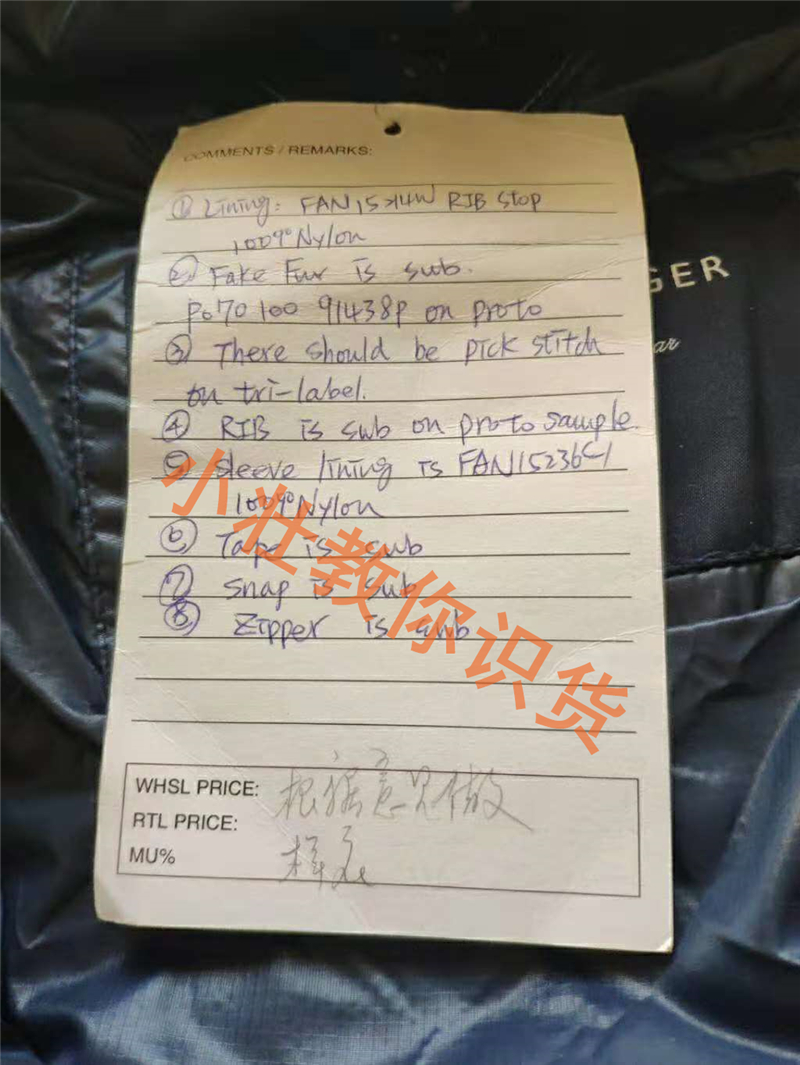 COMMENTS / REMARKS:
① Lining: FAN15214W RIB Stop
100% Nylon
② Fake Fur is sub.
P070100 91438P on proto
③ There should be pick stitch
on tri-label.
④ RIB is sub on proto sample.
⑤ Sleeve lining is FAN15236C1
100% Nylon
⑥ Tape is sub
⑦ Snap is sub
⑧ Zipper is sub
WHSL PRICE:
RTL PRICE:
MU%
根据意见做
样衣
GER
ar
小壮教你识货